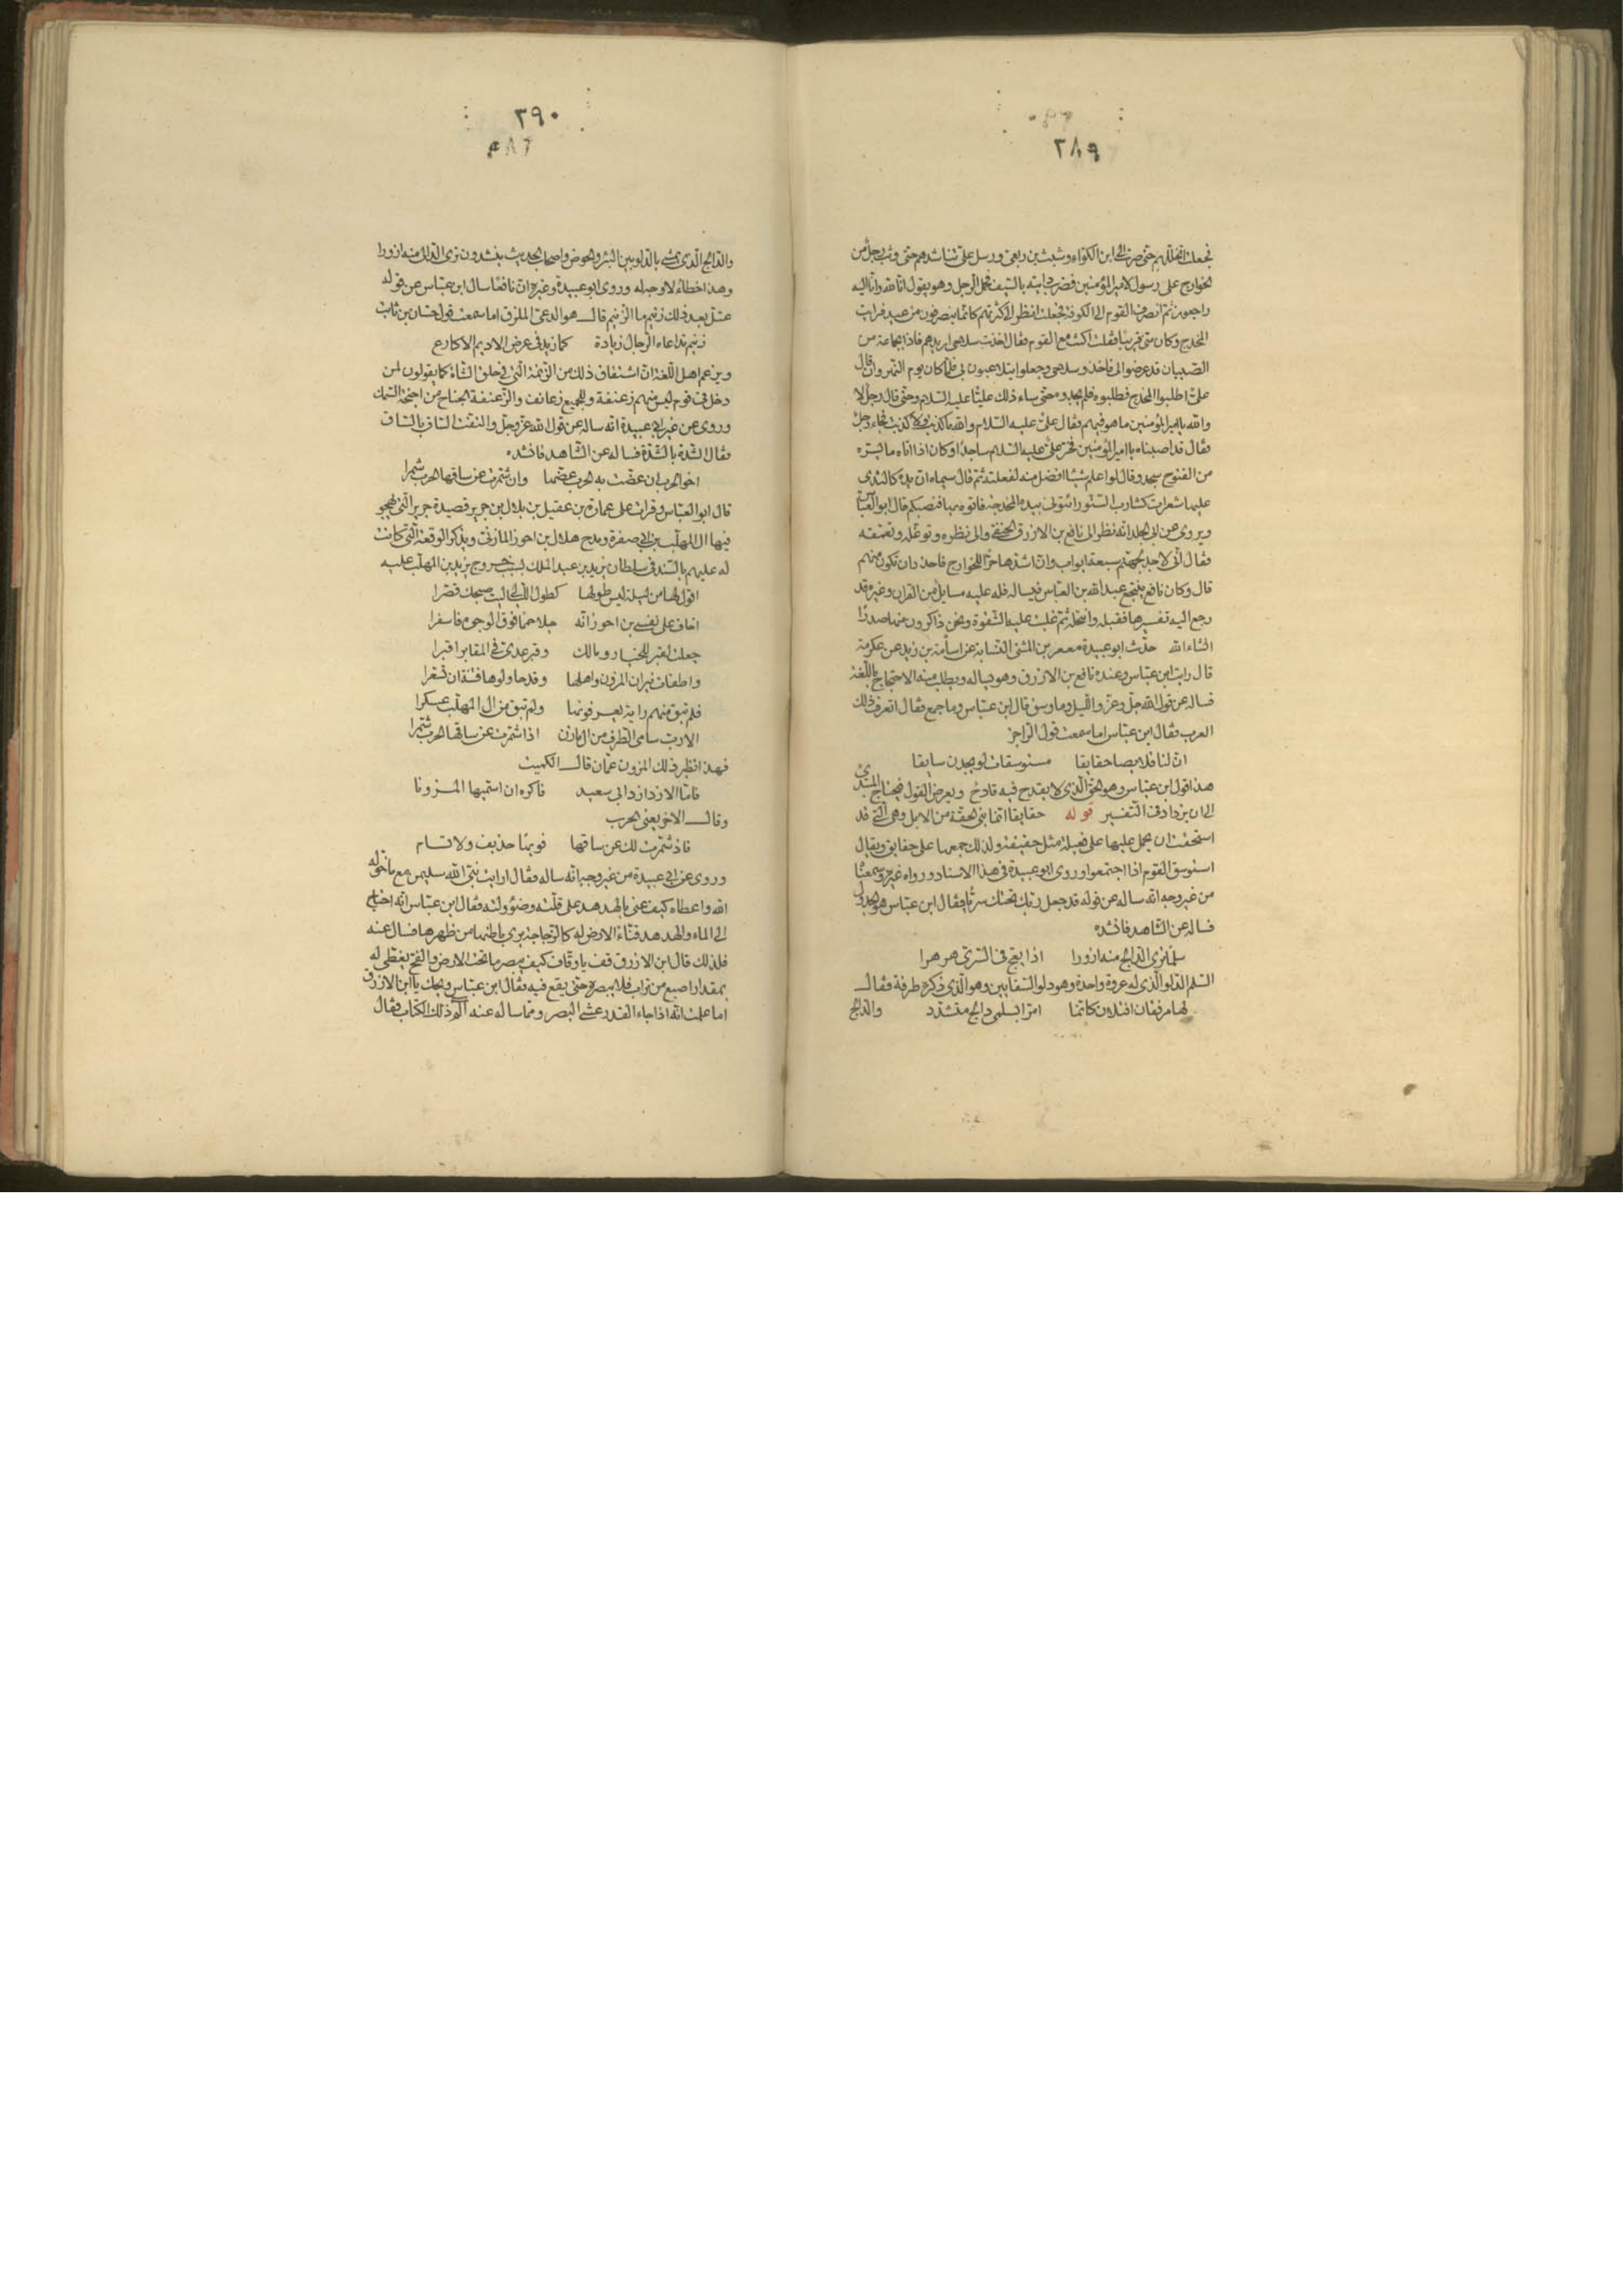 ٣٨٩
فجعلت اتخللهم حتى صرت الى ابن الكواء وشبث بن ربعى ورسل على تناشدهم حتى وثب رجل من
الخوارج على رسول لامير المؤمنين فضرب دابته بالسيف فحمل الرجل وهو يقول انا لله وانا اليه
راجعون ثم انصرف القوم الى الكوفة فجعلت انظر الى كثرتهم كانما ينصرفون من عيد فرايت
المخدج وكان منى قريبا فقلت اكنت مع القوم فقال اخذت سلاحى اريدهم فاذا بجماعة من
الصبيان قد عرضوا لى فاخذوا سلاحى وجعلوا يتلاعبون بى فلما كان يوم النهروان قال
على اطلبوا المخدج فطلبوه فلم يجدوه حتى ساء ذلك عليا عليه السلام وحتى قال رجل لا
والله يا امير المؤمنين ما هو فيهم فقال على عليه السلام والله ما كذبت ولا كذبت فجاء رجل
فقال قد اصبناه يا امير المؤمنين فخر على عليه السلام ساجدا وكان اذا اتاه ما يسره
من الفتوح سجد وقال لو اعلم شيئا افضل منه لفعلته ثم قال سيماه ان يده كالثدى
عليها شعرات كشارب السنور ائتونى بيده المخدجة فاتوه بها فنصبها قال ابو العباس
ويروى عن ابى الجلد انه نظر الى نافع بن الازرق الحنفى والى نظره وتوغله وتعمقه
فقال انى لاجد لجهنم سبعة ابواب وان اشدها حرا للخوارج فاحذر ان تكون منهم
قال وكان نافع ينتجع عبد الله بن العباس فيساله فله عليه مسايل من القران وغيره قد
رجع اليه تفسيرها فقبله وانتحله ثم غلبت عليه الشقوة ونحن ذاكرون منها صدرا
انشاء الله حدث ابو عبيدة معمر بن المثنى النسابة عن اسامة بن زيد عن عكرمة
قال رايت ابن عباس وعنده نافع بن الازرق وهو يساله ويطلب منه الاحتجاج باللغة
فساله عن قول الله جل وعز والليل وما وسق قال ابن عباس وما جمع فقال اتعرف ذلك
العرب فقال ابن عباس اما سمعت قول الراجز
ان لنا قلايصا حقايقا مستوسقات لو يجدن سايقا
هذا قول ابن عباس وهو الحق الذى لا يقدح فيه قادح ويعرض القول فيحتاج المبتدى
الى ان يزداد فى التفسير قوله حقايقا انما بنى الحقة من الابل وهى التى قد
استحقت ان يحمل عليها على فعيلة مثل حقيقة ولذلك جمعها على حقايق ويقال
استوسق القوم اذا اجتمعوا وروى ابو عبيدة فى هذا الاسناد ورواه غيره وسمعنا
من غير وجه انه ساله عن قوله قد جعل ربك تحتك سريا فقال ابن عباس هو الجدول
فساله عن الشاهد فانشده
سلما ترى الدالج منه ازورا اذا يعج فى السرى هرهرا
السلم الدلو الذى له عروة واحدة وهو دلو السقايين وهو الذى ذكره طرفة فقال
لها مرفقان افتلان كانما امرا بسلمى دالج متشدد والدالج
٣٩٠
والدالج الذى يمشى بالدلو بين البئر والحوض واصحاب الحديث ينشدون ترى الدالى منه ازورا
وهذا خطاء لا وجه له وروى ابو عبيدة وغيره ان نافعا سال ابن عباس عن قوله
عتل بعد ذلك زنيم ما الزنيم قال هو الدعى الملزق اما سمعت قول حسان بن ثابت
زنيم تداعاه الرجال زيادة كما زيد فى عرض الاديم الاكارع
ويزعم اهل اللغة ان اشتقاق ذلك من الزنمة التى فى حلق الشاة كما يقولون لمن
دخل فى قوم ليس منهم زعنفة وللجميع زعانف والزعنفة الجناح من اجنحة السمك
وروى عن غير ابى عبيدة انه ساله عن قول الله عز وجل والتفت الساق بالساق
فقال الشدة بالشدة فساله عن الشاهد فانشده
اخو الحرب ان عضت به الحرب عضها وان شمرت عن ساقها الحرب شمرا
قال ابو العباس وقرات على عمارة بن عقيل بن بلال بن جرير قصيدة جرير التى يهجو
فيها ال المهلب بن ابى صفرة ويمدح هلال بن احوز المازنى ويذكر الوقعة التى كانت
له عليهم بالسند فى سلطان يزيد بن عبد الملك بسبب خروج يزيد بن المهلب عليه
اقول لها من ليلة ليس طولها كطول الليالى ليت صبحك نورا
اخاف على نفسى بن احوز انه جلا حمما فوق الوجوه فاسفرا
جعلت لقبر للخيار ومالك وقبر عدى فى المقابر اقبرا
واطفات نيران المزون واهلها وقد حاولوها فتنة ان تسعرا
فلم تبق منهم راية يعرفونها ولم تبق من ال المهلب عسكرا
الا رب سامى الطرف من ال مازن اذا شمرت عن ساقها الحرب شمرا
فهذا نظير ذلك المزون عمان قال الكميت
فاما الازد ازد ابى سعيد فاكره ان اسميها المزونا
وقال الاخر يعنى الحرب
قاذ شمرت لك عن ساقها فويها حذيف ولا تسام
وروى عن ابى عبيدة من غير وجه انه ساله فقال ارايت نبى الله سليمن مع ما خوله
الله واعطاه كيف عنى بالهدهد على قلته وضؤولته فقال ابن عباس انه احتاج
الى الماء والهدهد قناء الارض له كالزجاجة يرى باطنها من ظهرها فسال عنه
فلذلك قال ابن الازرق قف يا وقاف كيف يبصر ما تحت الارض والفخ يغطى له
بمقدار اصبع من تراب فلا يبصره حتى يقع فيه فقال ابن عباس ويحك يا ابن الازرق
اما علمت انه اذا جاء القدر عشى البصر ومما ساله عنه الم ذلك الكتاب فقال